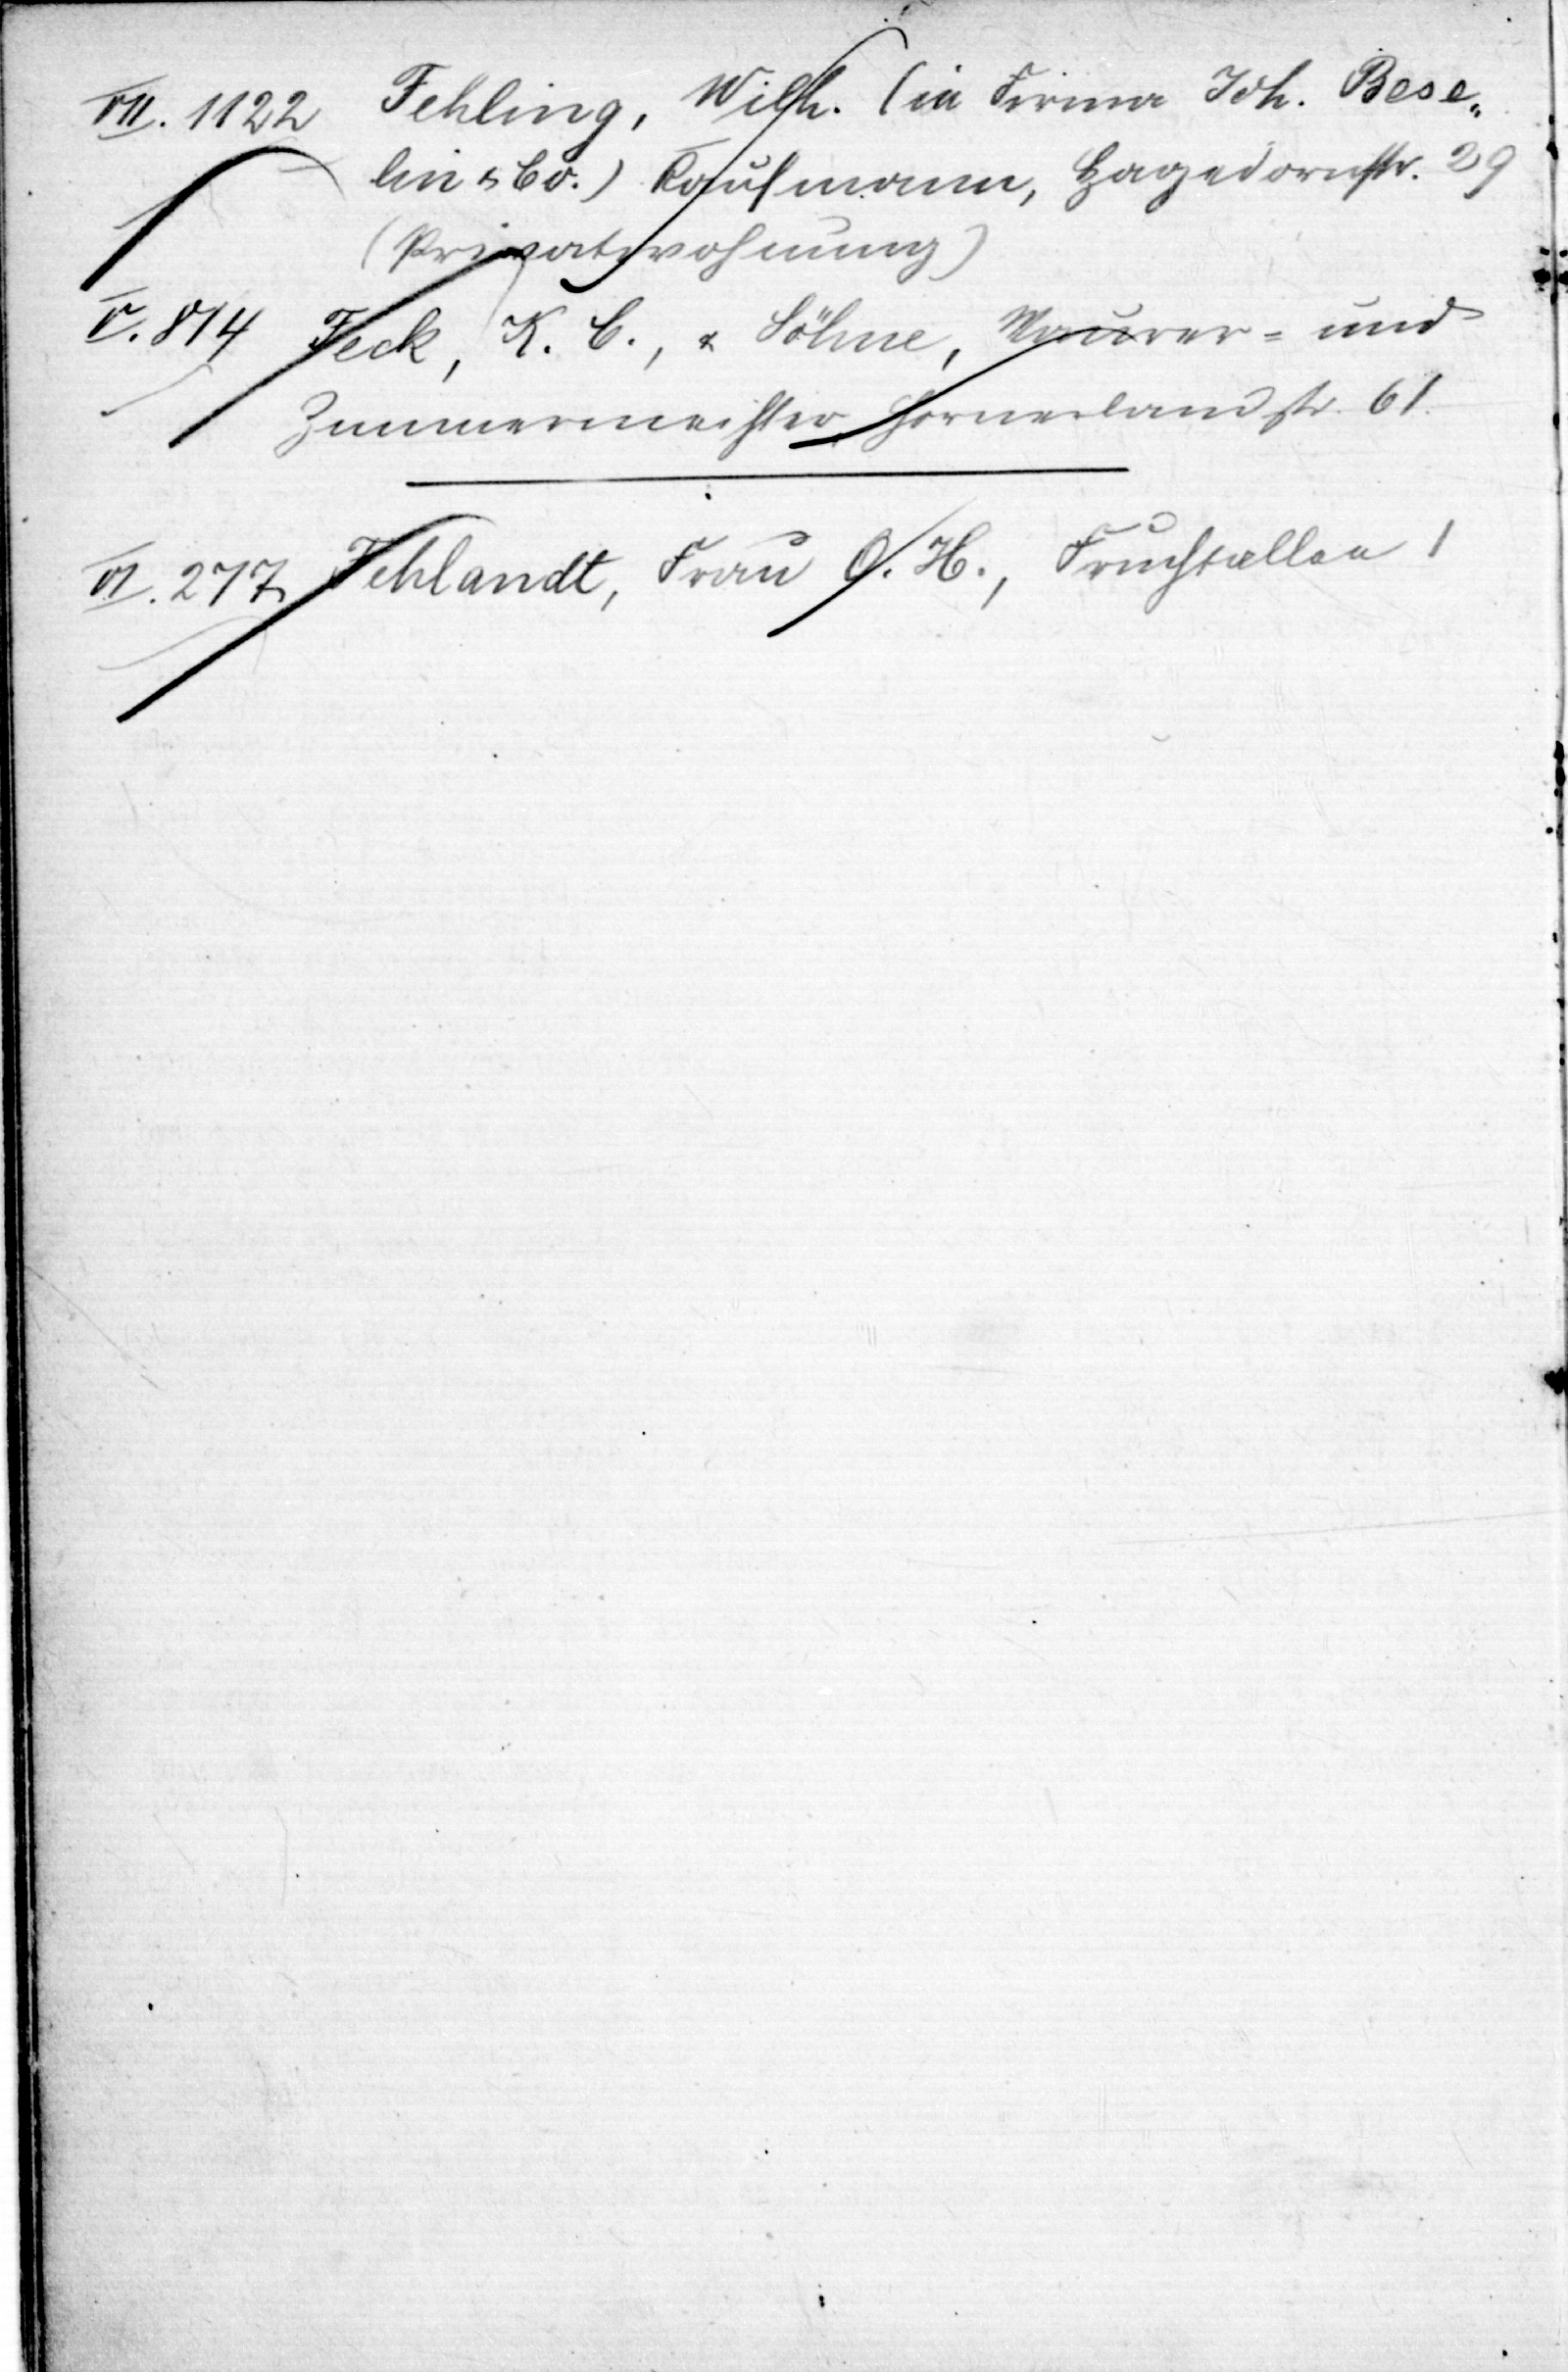 VII. 1122 Fehling, Wilh. (in Firma Joh. Bese„
lin & Co.) Kaufmann, Hagedornstr. 29
(Privatwohnung)
V. 814 Feck, K. C., & Söhne, Maurer= und
Zimmermeister, Hornerlandstr. 61.
VI. 277 Fehlandt, Frau O. H., Fruchtallee 1